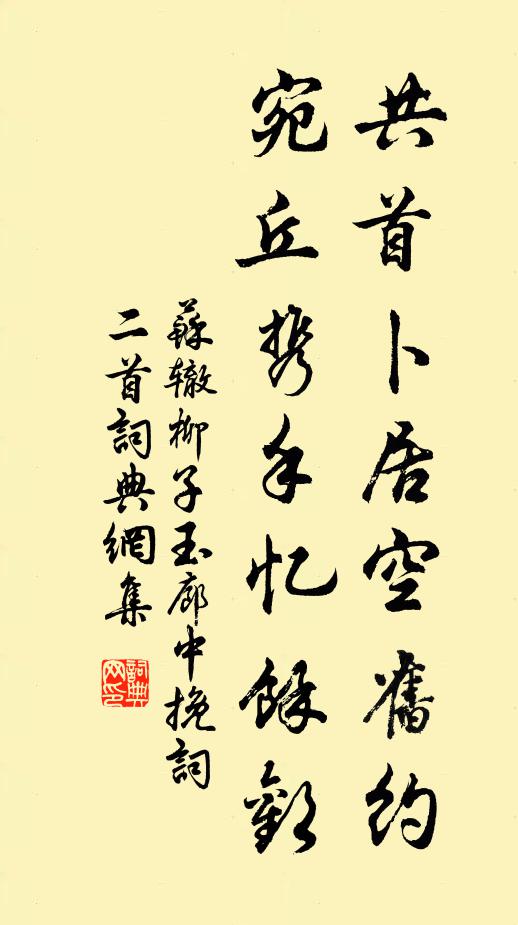 共首卜居空舊約
宛丘携手忆餘歡
蘇辙柳子玉廊中挽詞
二首詞典網集
詞典
网印